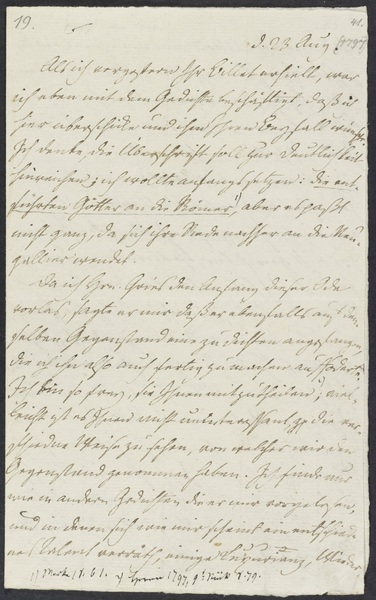 19.
41.
d. 23 Aug [1797]
Als ich vorgestern Ihr Billet erhielt, war
ich eben mit dem Gedichte beschäftigt, daß ich
hier überschicke und ihm Ihren Beyfall wünsche.
Ich denke, die Überschrift soll zur Deutlichkeit
hinreichen; ich wollte anfangs setzen: die ent-
führten Götter an die Römer, aber es paßt
nicht ganz, da sich ihre Rede nachher an die Neu-
gallier wendet.
Da ich Hrn. Gries den Anfang dieser Ode
vorlas, sagte er mir daß er ebenfalls auf den-
selben Gegenstand eine zu dichten angefangen,
die ich ihn also auch fertig zu machen aufforderte.
Ich bin so frey, sie Ihnen mitzutheilen; viel-
leicht ist es Ihnen nicht uninteressant, die ver-
schiedne Weise zu sehen, von welcher wir den
Gegenstand genommen haben. Ich finde nur
wie in andern Gedichten die er mir vorgelesen,
und in denen sich wie mir scheint ein entschied-
nes Talent verräth, einige Luxurianz, Wieder